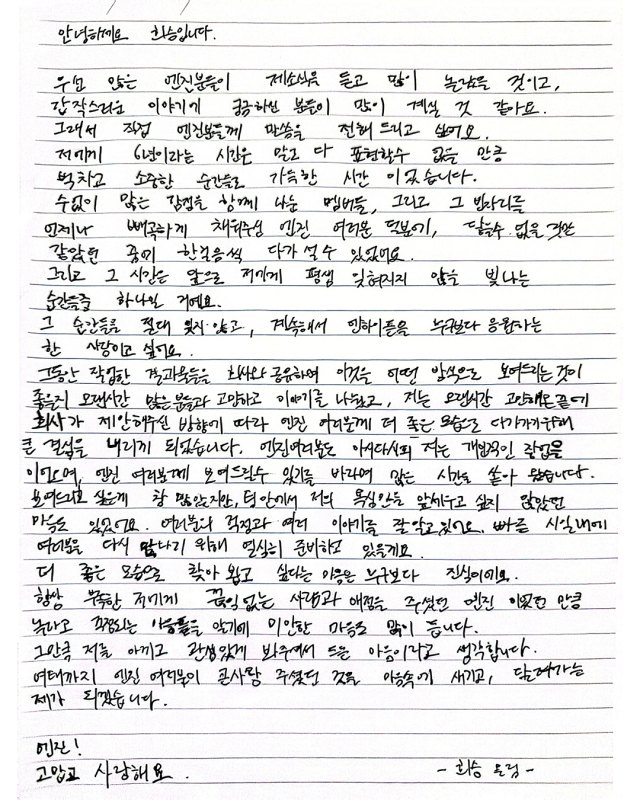 안녕하세요 희승입니다.
우선 많은 엔진분들이 제소식을 듣고 많이 놀랐을 것이고,
갑작스러운 이야기에 궁금하신 분들이 많이 계실 것 같아요.
그래서 직접 엔진분들께 말씀을 전해 드리고 싶어요.
저에게 6년이라는 시간은 말로 다 표현할수 없을 만큼
벅차고 소중한 순간들로 가득한 시간 이었습니다.
수없이 많은 감정을 함께 나눈 멤버들, 그리고 그 빈자리를
언제나 빼곡하게 채워주신 엔진 여러분 덕분에, 닿을수 없을 것만
같았던 꿈에 한걸음씩 다가 설 수 있었어요.
그리고 그 시간은 앞으로 저에게 평생 잊혀지지 않을 빛나는
순간들중 하나일 거에요.
그 순간들을 절대 잊지 않고, 계속해서 엔하이픈을 누구보다 응원하는
한 사람이고 싶어요.
그동안 작업한 결과물들을 회사와 공유하며 이것을 어떤 방식으로 보여드리는것이
좋을지 오랜시간 많은분들과 고민하고 이야기를 나눴고, 저는 오랜시간 고민해온 끝에
회사가 제안해주신 방향에 따라 엔진 여러분께 더 좋은 모습으로 다가가기위해
큰 결심을 내리게 되었습니다. 엔진여러분도 아시다시피 저는 개인적인 작업을
이어오며, 엔진 여러분께 보여드릴수 있기를 바라며 많은 시간을 쏟아 왔습니다.
보여드리고 싶은게 참 많았지만, 팀 안에서 저의 욕심만을 앞세우고 싶지 않았던
마음도 있었어요. 여러분의 걱정과 여러 이야기를 잘 알고 있어요. 빠른 시일내에
여러분을 다시 만나기 위해 열심히 준비하고 있을게요.
더 좋은 모습으로 찾아 뵙고 싶다는 마음은 누구보다 진심이에요.
항상 부족한 저에게 끊임 없는 사랑과 애정을 주셨던 엔진 이었던 만큼
놀라고 걱정되는 마음들을 알기에 미안한 마음도 많이 듭니다.
그만큼 저를 아끼고 관심있게 봐주셔서 드는 마음이라고 생각합니다.
여태까지 엔진 여러분이 큰사랑 주셨던 것을 마음속에 새기고, 달려가는
제가 되겠습니다.
엔진!
고맙고 사랑해요.
- 희승 올림 -